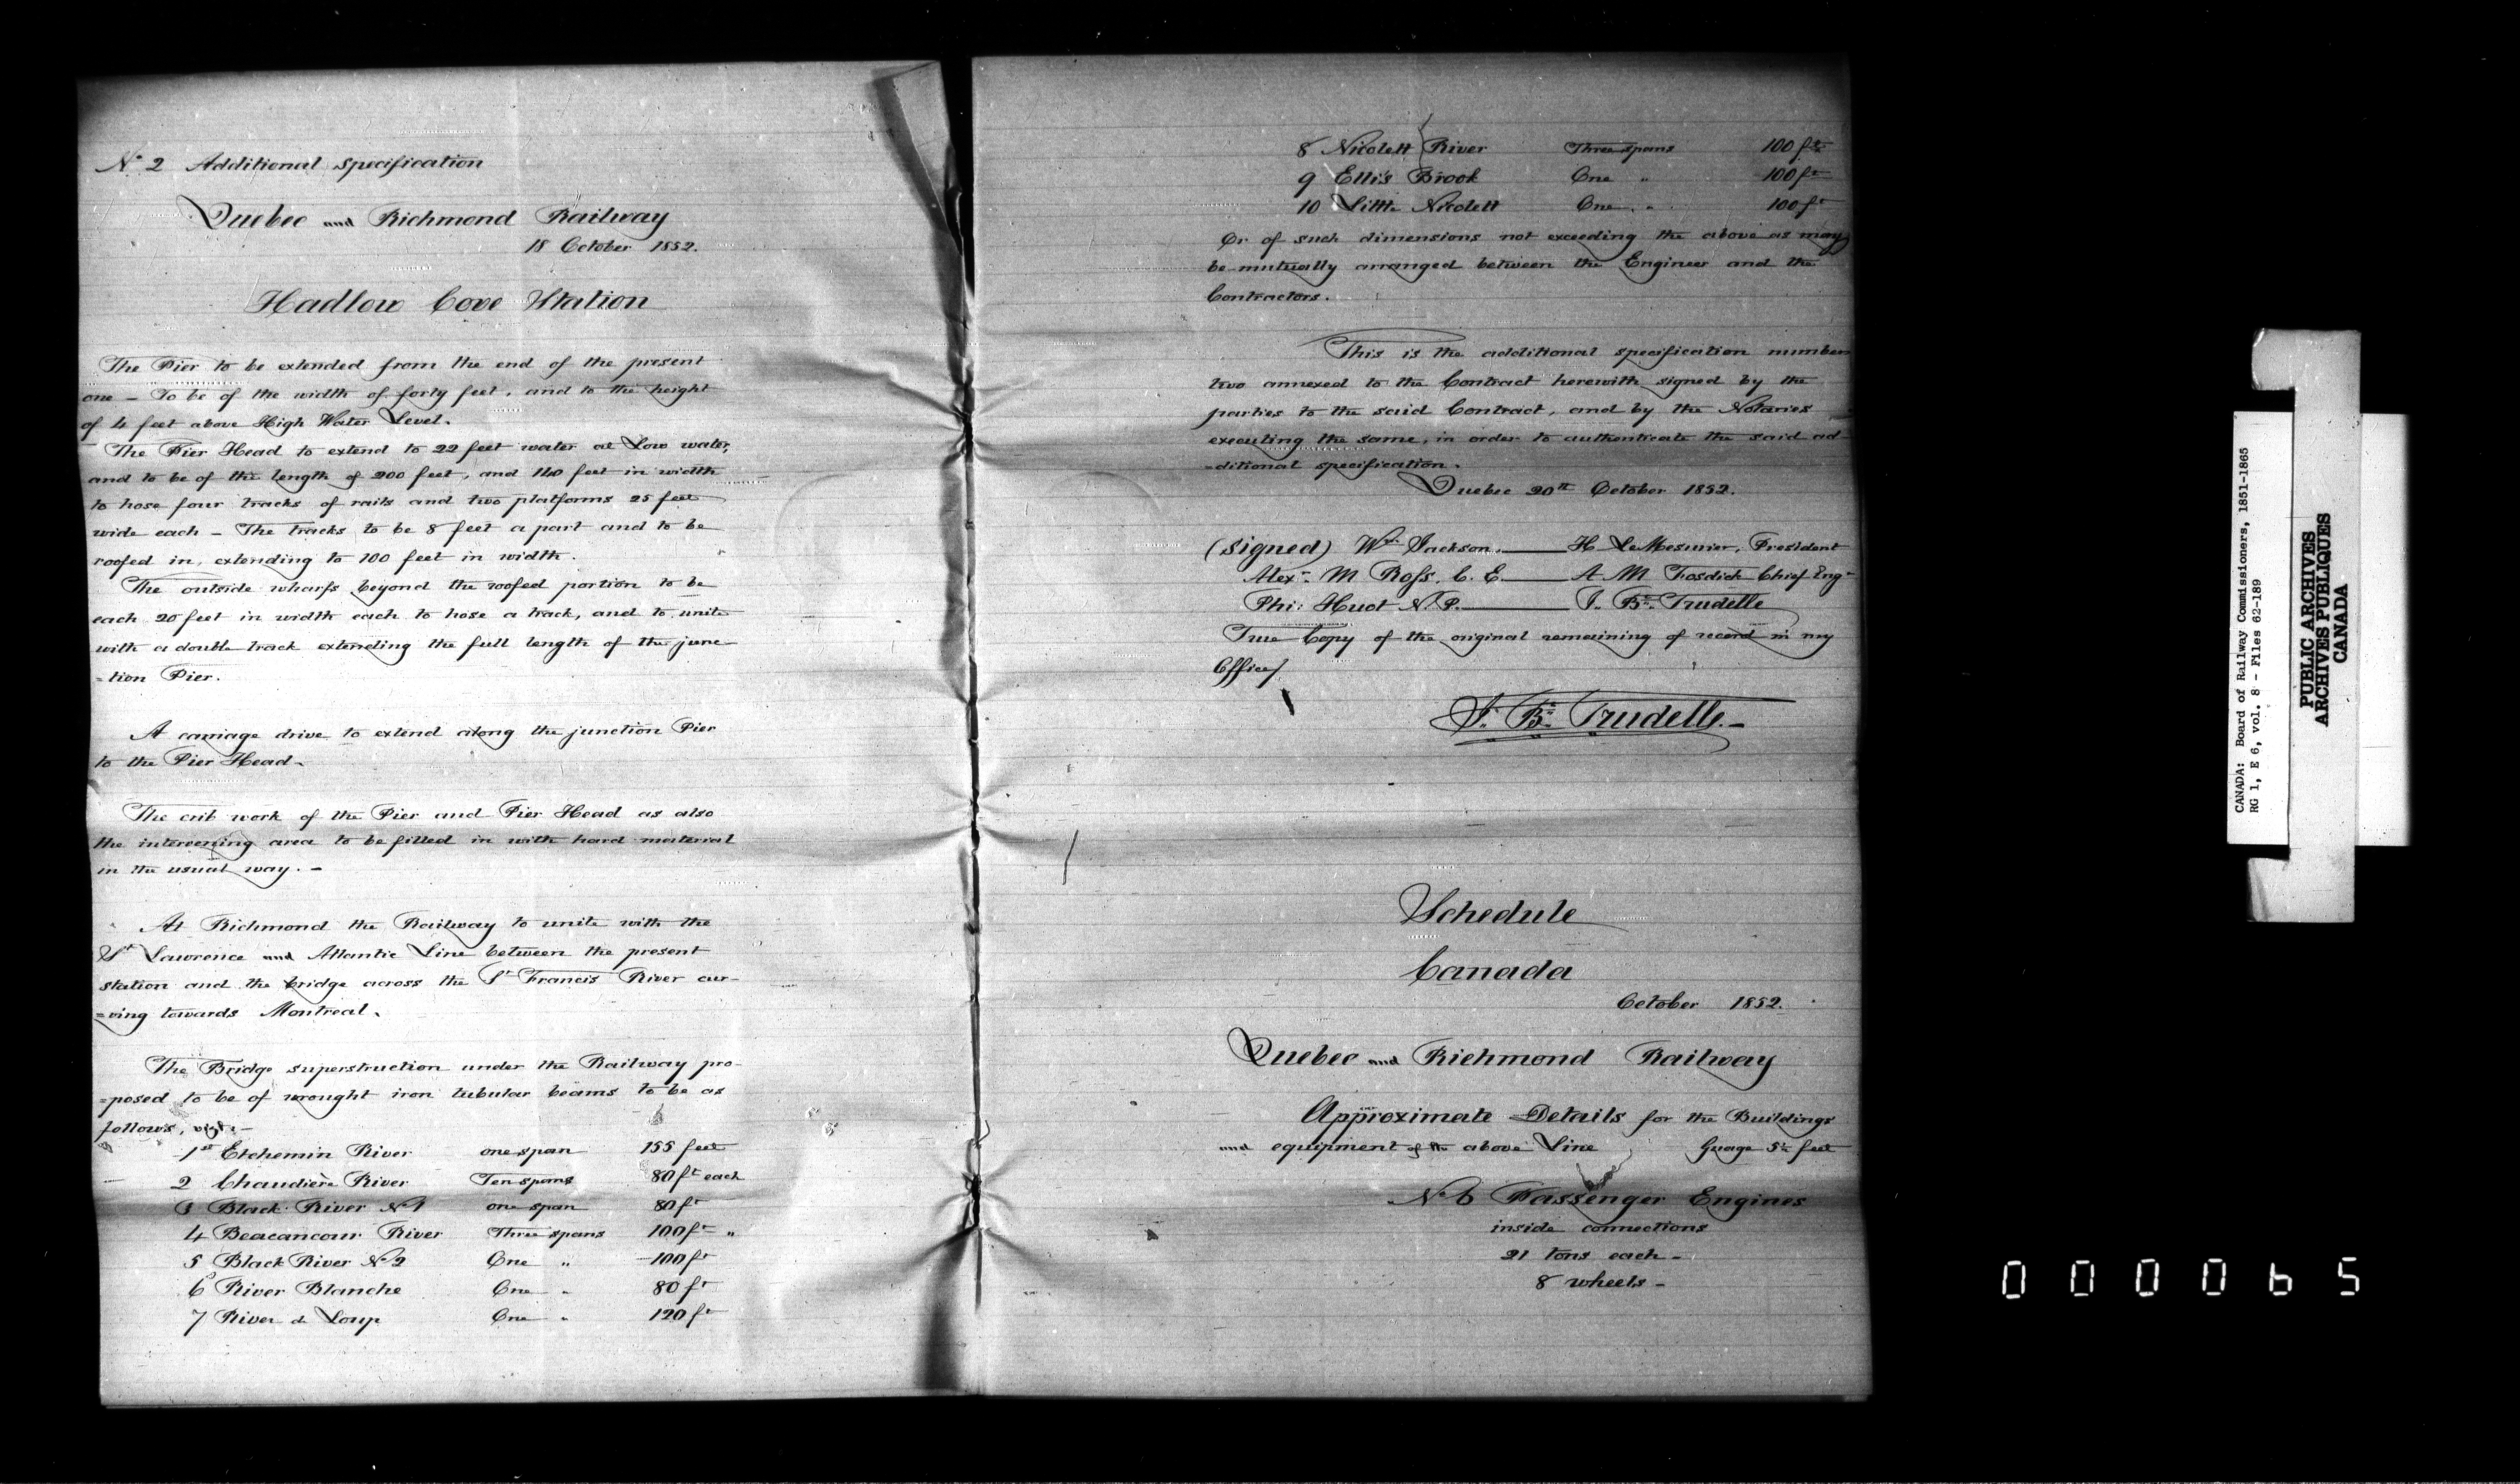 No. 2 Additional Specification
Quebec and Richmond Railway
18 October 1852.
Hadlow Cove Station
The Pier to be extended from the end of the present
one – To be of the width of forty feet, and to the height
of 4 feet above High Water Level.
The Pier Head to extend to 22 feet water at Low water,
and to be of the length of 200 feet, and 140 feet in width
to hose four tracks of rails and two platforms 25 feet
wide each – The tracks to be 8 feet a part and to be
roofed in, extending to 100 feet in width.
The outside wharfs beyond the roofed portion to be
each 20 feet in width each to hose a track, and to unite
with a double track extending the full length of the junc-
=tion Pier.
A carriage drive to extend along the junction Pier
to the Pier Head.
The crib work of the Pier and Pier Head as also
the intervening area to be filled in with hard material
in the usual way. –
At Richmond the Railway to unite with the
St. Lawrence and Atlantic Line between the present
station and the bridge across the St. Francis River cur-
=ving towards Montreal.
The Bridge superstruction under the Railway pro-
=posed to be of wrought iron tubular beams to be as
follows, vizt: –
1st Etchemin River one span 155 feet
2 Chaudière River Ten spans 80 ft each
3 Black River No 1 one span 80 ft
4 Beacancour River Three spans 100 ft "
5 Black River No 2 One " 100 ft
6 River Blanche One " 80 ft
7 River d Loup One " 120 ft
8 Nicolett River Three spans 100 ft
9 Ellis Brook One " 100 ft
10 Little Nicolett One " 100 ft
Or of such dimensions not exceeding the above as may
be mutually arranged between the Engineer and the
Contractors.
This is the additional specification number
two annexed to the Contract herewith signed by the
parties to the said Contract, and by the Notaries
executing the same, in order to authenticate the said ad-
=ditional specification.
Quebec 20th October 1852.
(Signed) Wm Jackson. H LeMesurier, President
Alexr. M Ross, C. E. A M Fosdick Chief Engr
Phi: Huot N.P. J. Bte. Trudelle
True Copy of the original remaining of record in my
Office/.
J. Bte. Trudelle. –
Schedule
Canada
October 1852.
Quebec and Richmond Railway
Approximate Details for the Buildings
and equipment of the above Line Guage 5½ feet
No 6 Passenger Engines
inside connections
21 tons each –
8 wheels –
CANADA: Board of Railway Commissioners, 1851-1865
RG 1, E 6, vol. 8 - Files 62-189
PUBLIC ARCHIVES
ARCHIVES PUBLIQUES
CANADA
000065